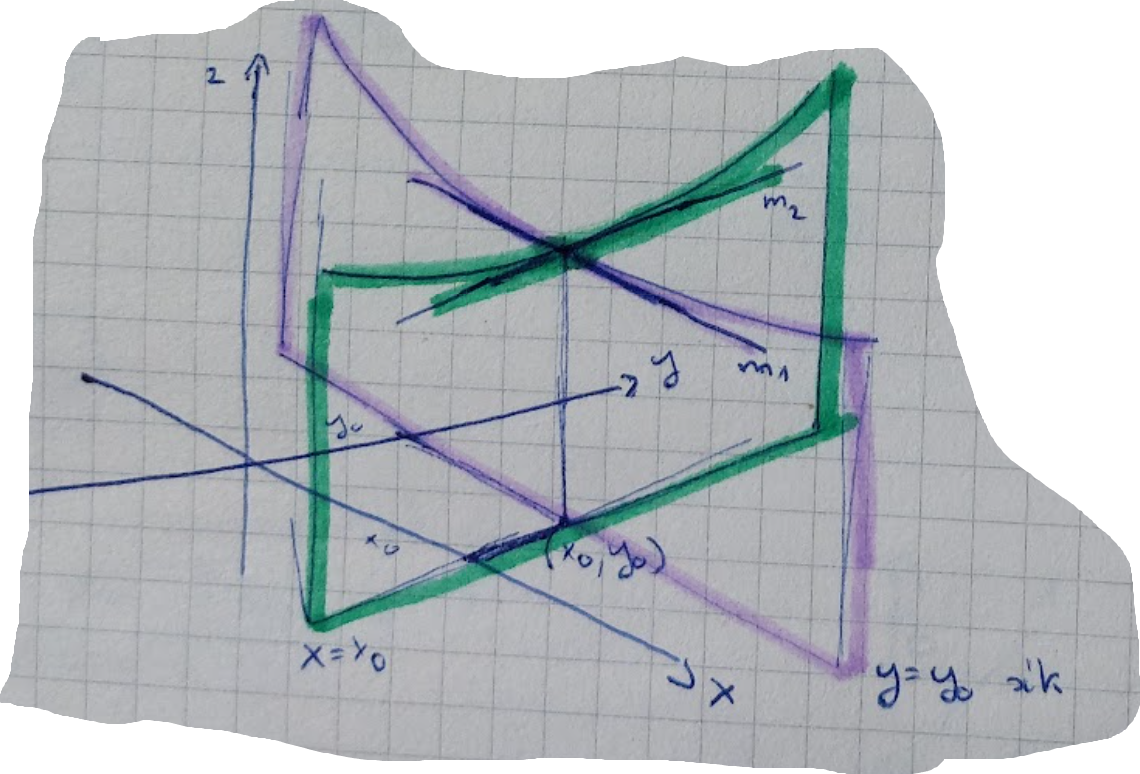 z
m₂
y
m₁
y₀
x₀
(x₀, y₀)
x = x₀
x
y = y₀ sík